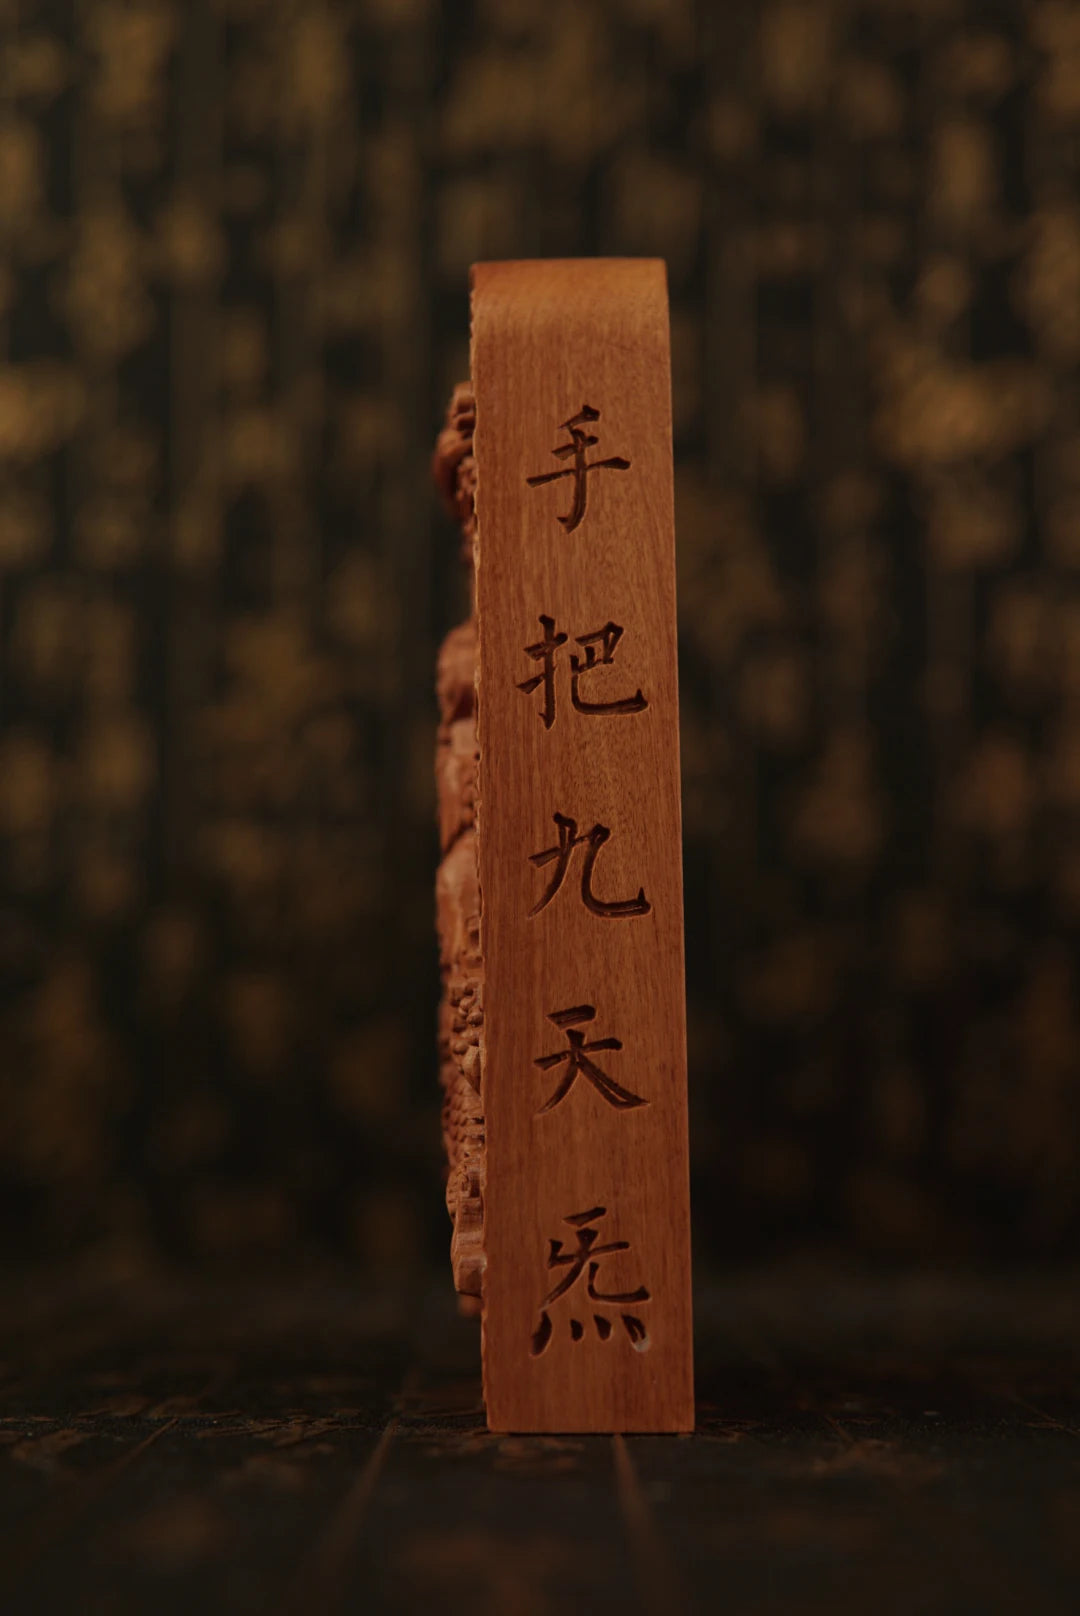 手把九天炁